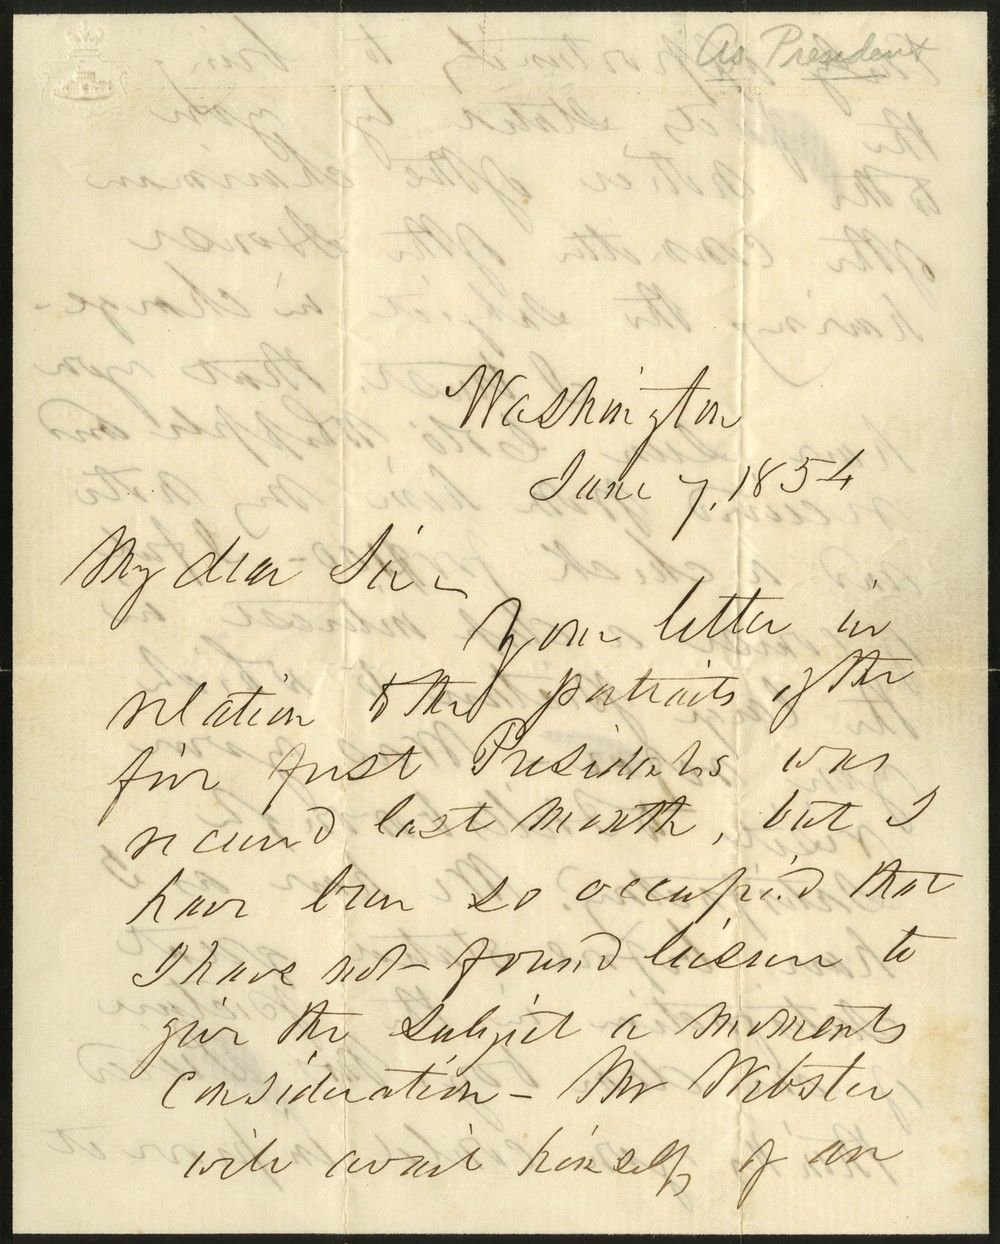 As President
Washington
June 7, 1854
My dear Sir
Your letter in
relation to the portraits of the
five first Presidents was
received last month, but I
have been so occupied that
I have not found leisure to
give the subject a moments
consideration – Mr Webster
will avail himself of an